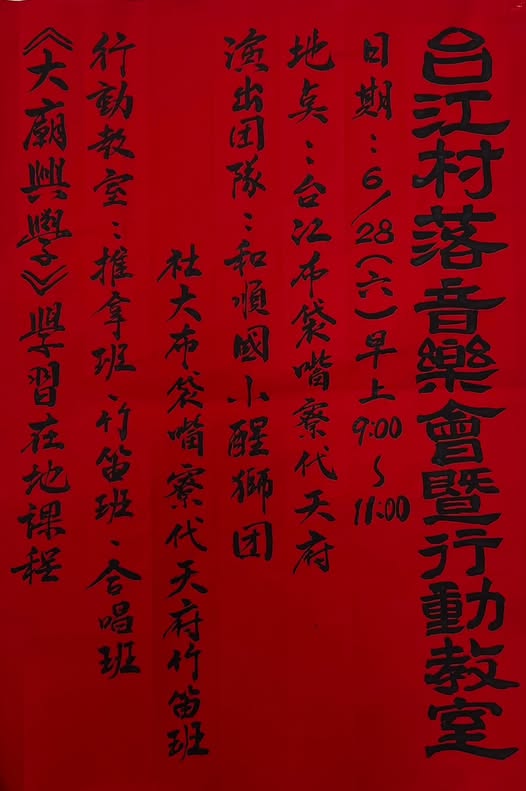 台江村落音樂會暨行動教室
日期：6/28(六)早上9:00~11:00
地点：台江布袋嘴寮代天府
演出团隊：和順國小醒獅团
社大布袋嘴寮代天府竹笛班
行動教室：推拿班、竹笛班、合唱班
《大廟興學》學習在地課程